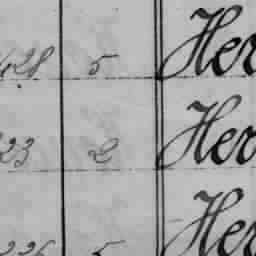 428 5 Her
23 2 Her
226 5 Her